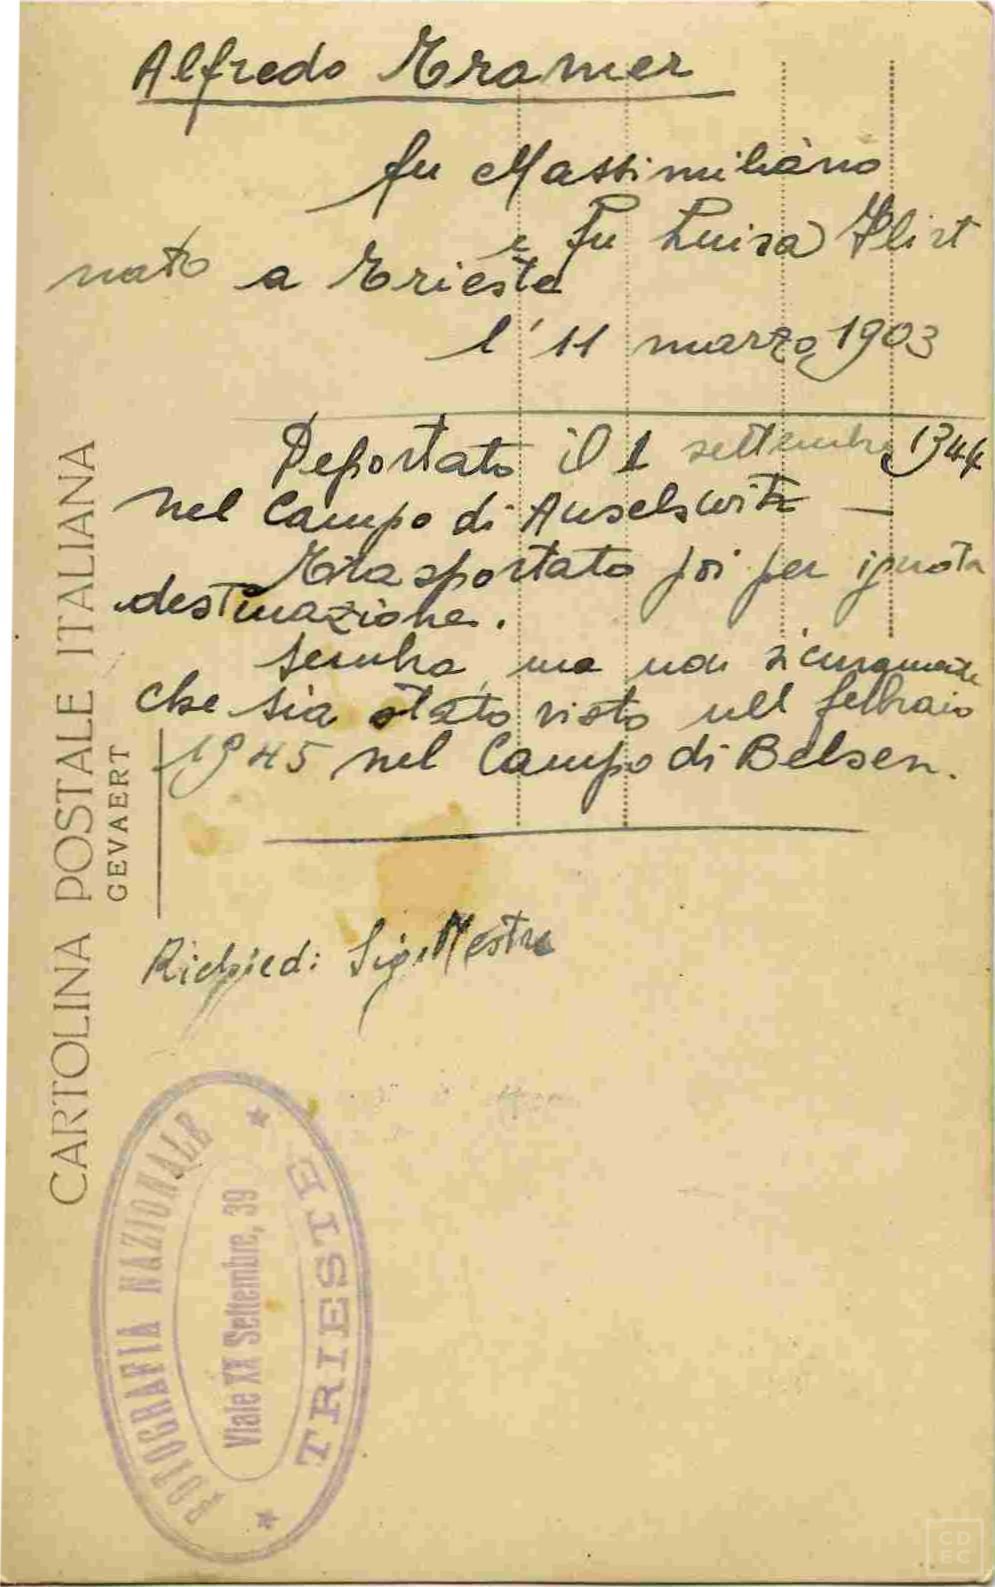 Alfredo Tramer
fu Massimiliano
e fu Luisa Plist
nato a Trieste
l' 11 marzo 1903
Deportato il 1 settembre 1944
nel Campo di Auselswitz —
Trasportato poi per ignota
destinazione.
Sembra, ma non sicuramente
che sia stato visto nel febbraio
1945 nel Campo di Belsen.
Richied: Sig. Mestre
CARTOLINA POSTALE ITALIANA
GEVAERT
FOTOGRAFIA NAZIONALE
Viale XX Settembre, 39
TRIESTE
CDEC